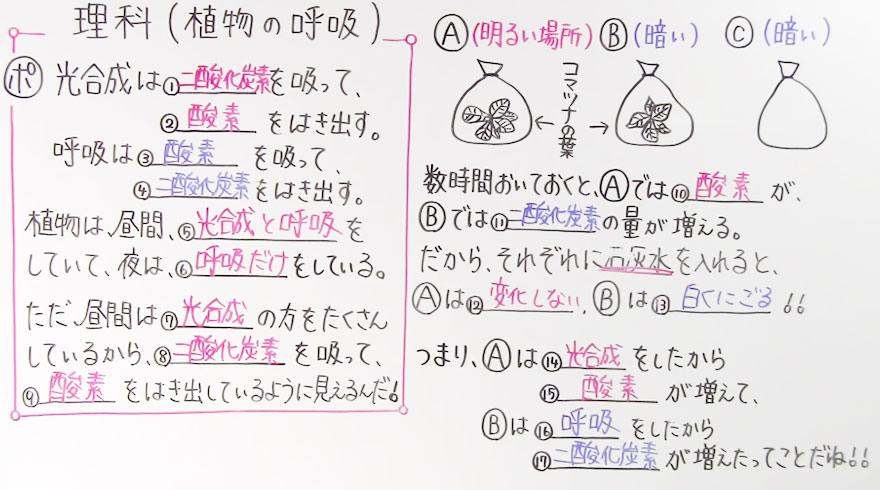 理科(植物の呼吸)
ポ 光合成は①二酸化炭素を吸って、
②酸素をはき出す。
呼吸は③酸素を吸って
④二酸化炭素をはき出す。
植物は、昼間、⑤光合成と呼吸を
していて、夜は、⑥呼吸だけをしている。
ただ、昼間は⑦光合成の方をたくさん
しているから、⑧二酸化炭素を吸って、
⑨酸素をはき出しているように見えるんだ!
Ⓐ(明るい場所) Ⓑ(暗い) Ⓒ(暗い)
←コマツナの葉→
数時間おいておくと、Ⓐでは⑩酸素が、
Ⓑでは⑪二酸化炭素の量が増える。
だから、それぞれに石灰水を入れると、
Ⓐは⑫変化しない、Ⓑは⑬白くにごる!!
つまり、Ⓐは⑭光合成をしたから
⑮酸素が増えて、
Ⓑは⑯呼吸をしたから
⑰二酸化炭素が増えたってことだね!!